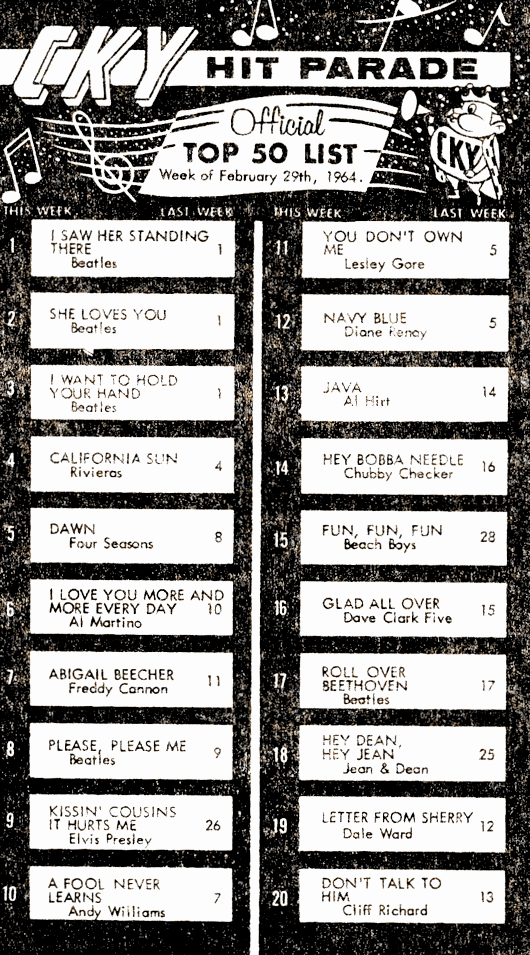 CKY HIT PARADE
Official
TOP 50 LIST
Week of February 29th, 1964.
CKY
THIS WEEK LAST WEEK
1 I SAW HER STANDING
THERE 1
Beatles
2 SHE LOVES YOU 1
Beatles
3 I WANT TO HOLD
YOUR HAND 1
Beatles
4 CALIFORNIA SUN 4
Rivieras
5 DAWN 8
Four Seasons
6 I LOVE YOU MORE AND
MORE EVERY DAY 10
Al Martino
7 ABIGAIL BEECHER 11
Freddy Cannon
8 PLEASE, PLEASE ME 9
Beatles
9 KISSIN' COUSINS
IT HURTS ME 26
Elvis Presley
10 A FOOL NEVER
LEARNS 7
Andy Williams
THIS WEEK LAST WEEK
11 YOU DON'T OWN
ME 5
Lesley Gore
12 NAVY BLUE 5
Diane Renay
13 JAVA 14
Al Hirt
14 HEY BOBBA NEEDLE 16
Chubby Checker
15 FUN, FUN, FUN 28
Beach Boys
16 GLAD ALL OVER 15
Dave Clark Five
17 ROLL OVER
BEETHOVEN 17
Beatles
18 HEY DEAN,
HEY JEAN 25
Jean & Dean
19 LETTER FROM SHERRY 12
Dale Ward
20 DON'T TALK TO
HIM 13
Cliff Richard